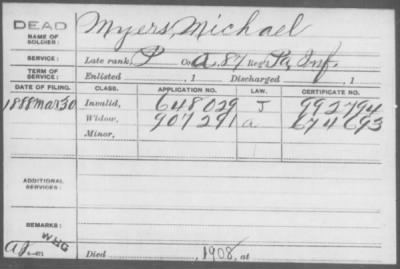 DEAD
NAME OF SOLDIER: Myers, Michael
SERVICE: Late rank, P Co. A, 87 Reg't Pa Inf.
TERM OF SERVICE: Enlisted , 1 Discharged , 1
DATE OF FILING. CLASS. APPLICATION NO. LAW. CERTIFICATE NO.
1888 Mar 30 Invalid, 648029 J 992794
Widow, 907291 a 674693
Minor,
ADDITIONAL SERVICES:
REMARKS:
WHG
Died , 1908, at